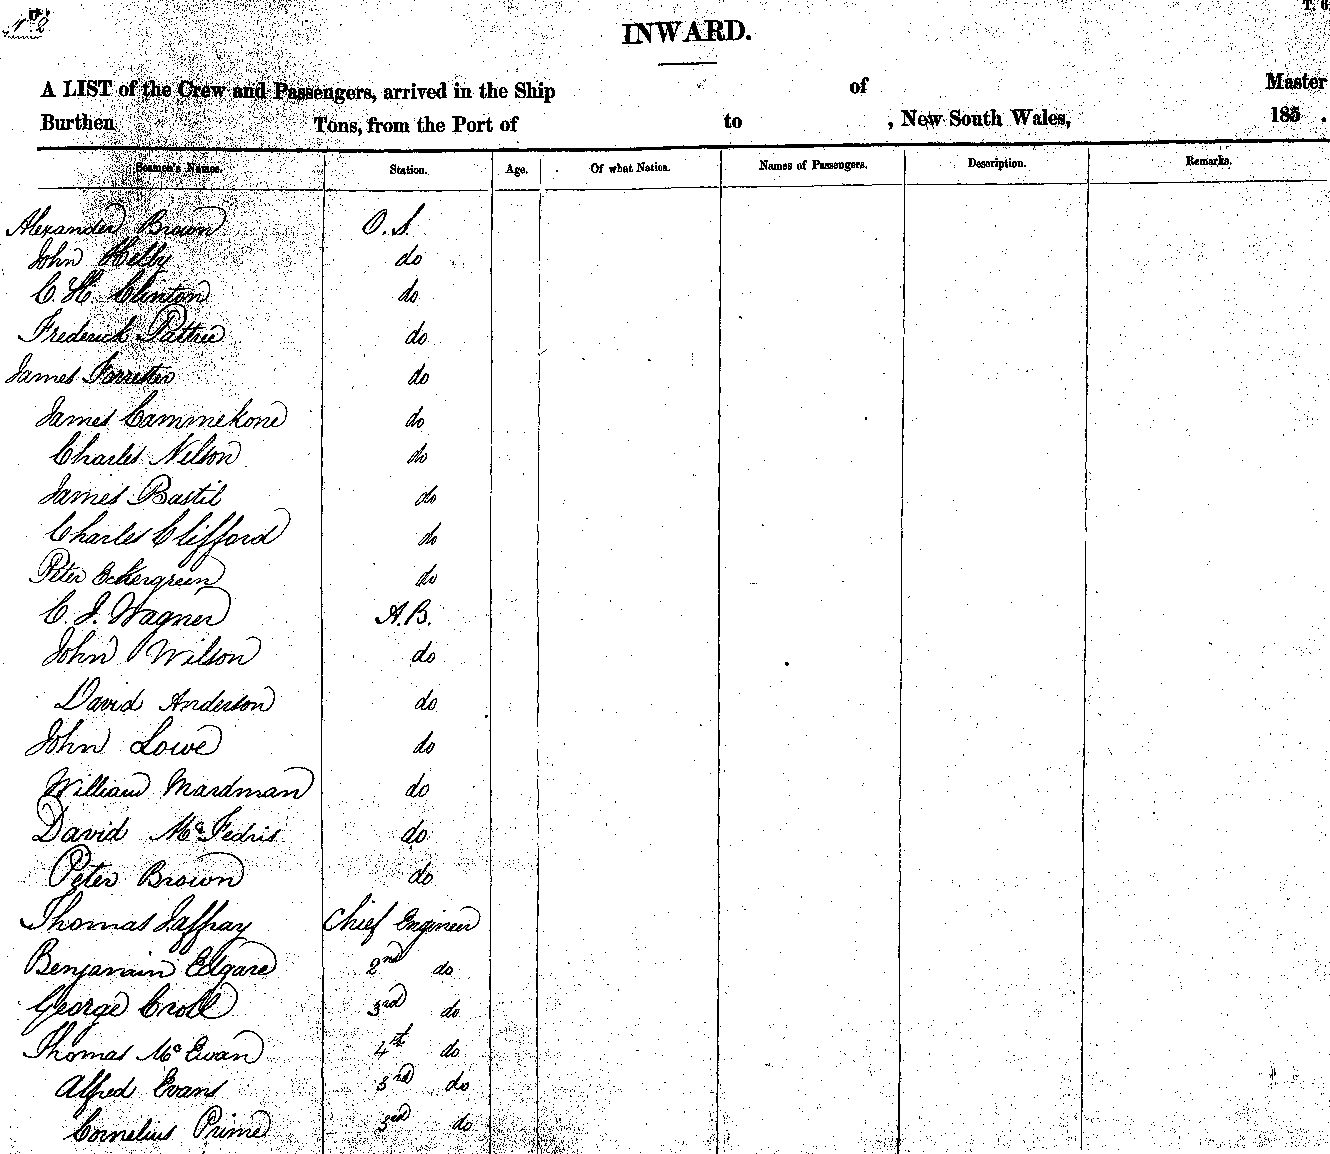 No. 2
T. 6
INWARD.
A LIST of the Crew and Passengers, arrived in the Ship of Master
Burthen Tons, from the Port of to , New South Wales, 185 .
Seamen's Names. Station. Age. Of what Nation. Names of Passengers. Description. Remarks.
Alexander Brown O.S.
John Kelly do
C. H. Clinton do
Frederick Pattrie do
James Forrester do
James Cammekone do
Charles Nelson do
James Bastil do
Charles Clifford do
Peter Eckergreen do
C. J. Wagner A.B.
John Wilson do
David Anderson do
John Lowe do
William Mardman do
David McFedris do
Peter Brown do
Thomas Jaffray Chief Engineer
Benjamin Edgare 2nd do
George Croll 3rd do
Thomas McEwan 4th do
Alfred Evans 3rd do
Cornelius Prime 3rd do